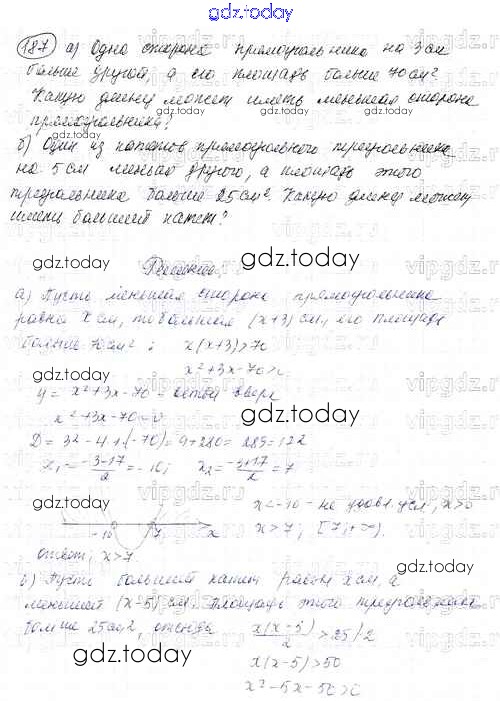 gdz.today
187 а) Одна сторона прямоугольника на 3 см
больше другой, а его площадь больше 70 см²
Какую длину может иметь меньшая сторона
прямоугольника?
б) Один из катетов прямоугольного треугольника
на 5 см меньше другого, а площадь этого
треугольника больше 25 см². Какую длину может
иметь больший катет?
gdz.today
Решение
gdz.today
а) Пусть меньшая сторона прямоугольника
равна x см, то большая (x+3) см, его площадь
больше 70 см²: x(x+3)>70
x²+3x-70>0
gdz.today
y = x²+3x-70 - ветви вверх
x²+3x-70=0
gdz.today
D = 3²-4·1·(-70)=9+280=289=17²
x₁=(-3-17)/2=-10; x₂=(-3+17)/2=7
gdz.today
x<-10 - не удовл. усл., x>0
-10 7 x
x>7, [7;+∞)
gdz.today
ответ: x>7.
б) Пусть больший катет равен x см, а
меньший (x-5) см. Площадь этого треугольника
больше 25 см², отсюда x(x-5)/2 >25 |·2
gdz.today
x(x-5)>50
gdz.today
x²-5x-50>0